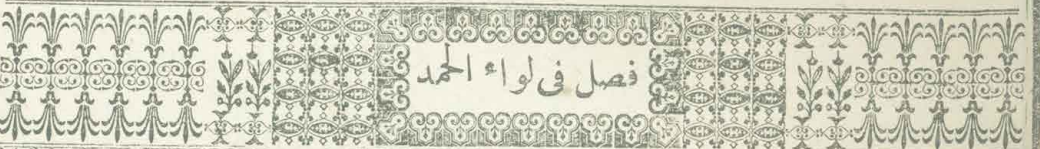 فصل فى لواء الحمد